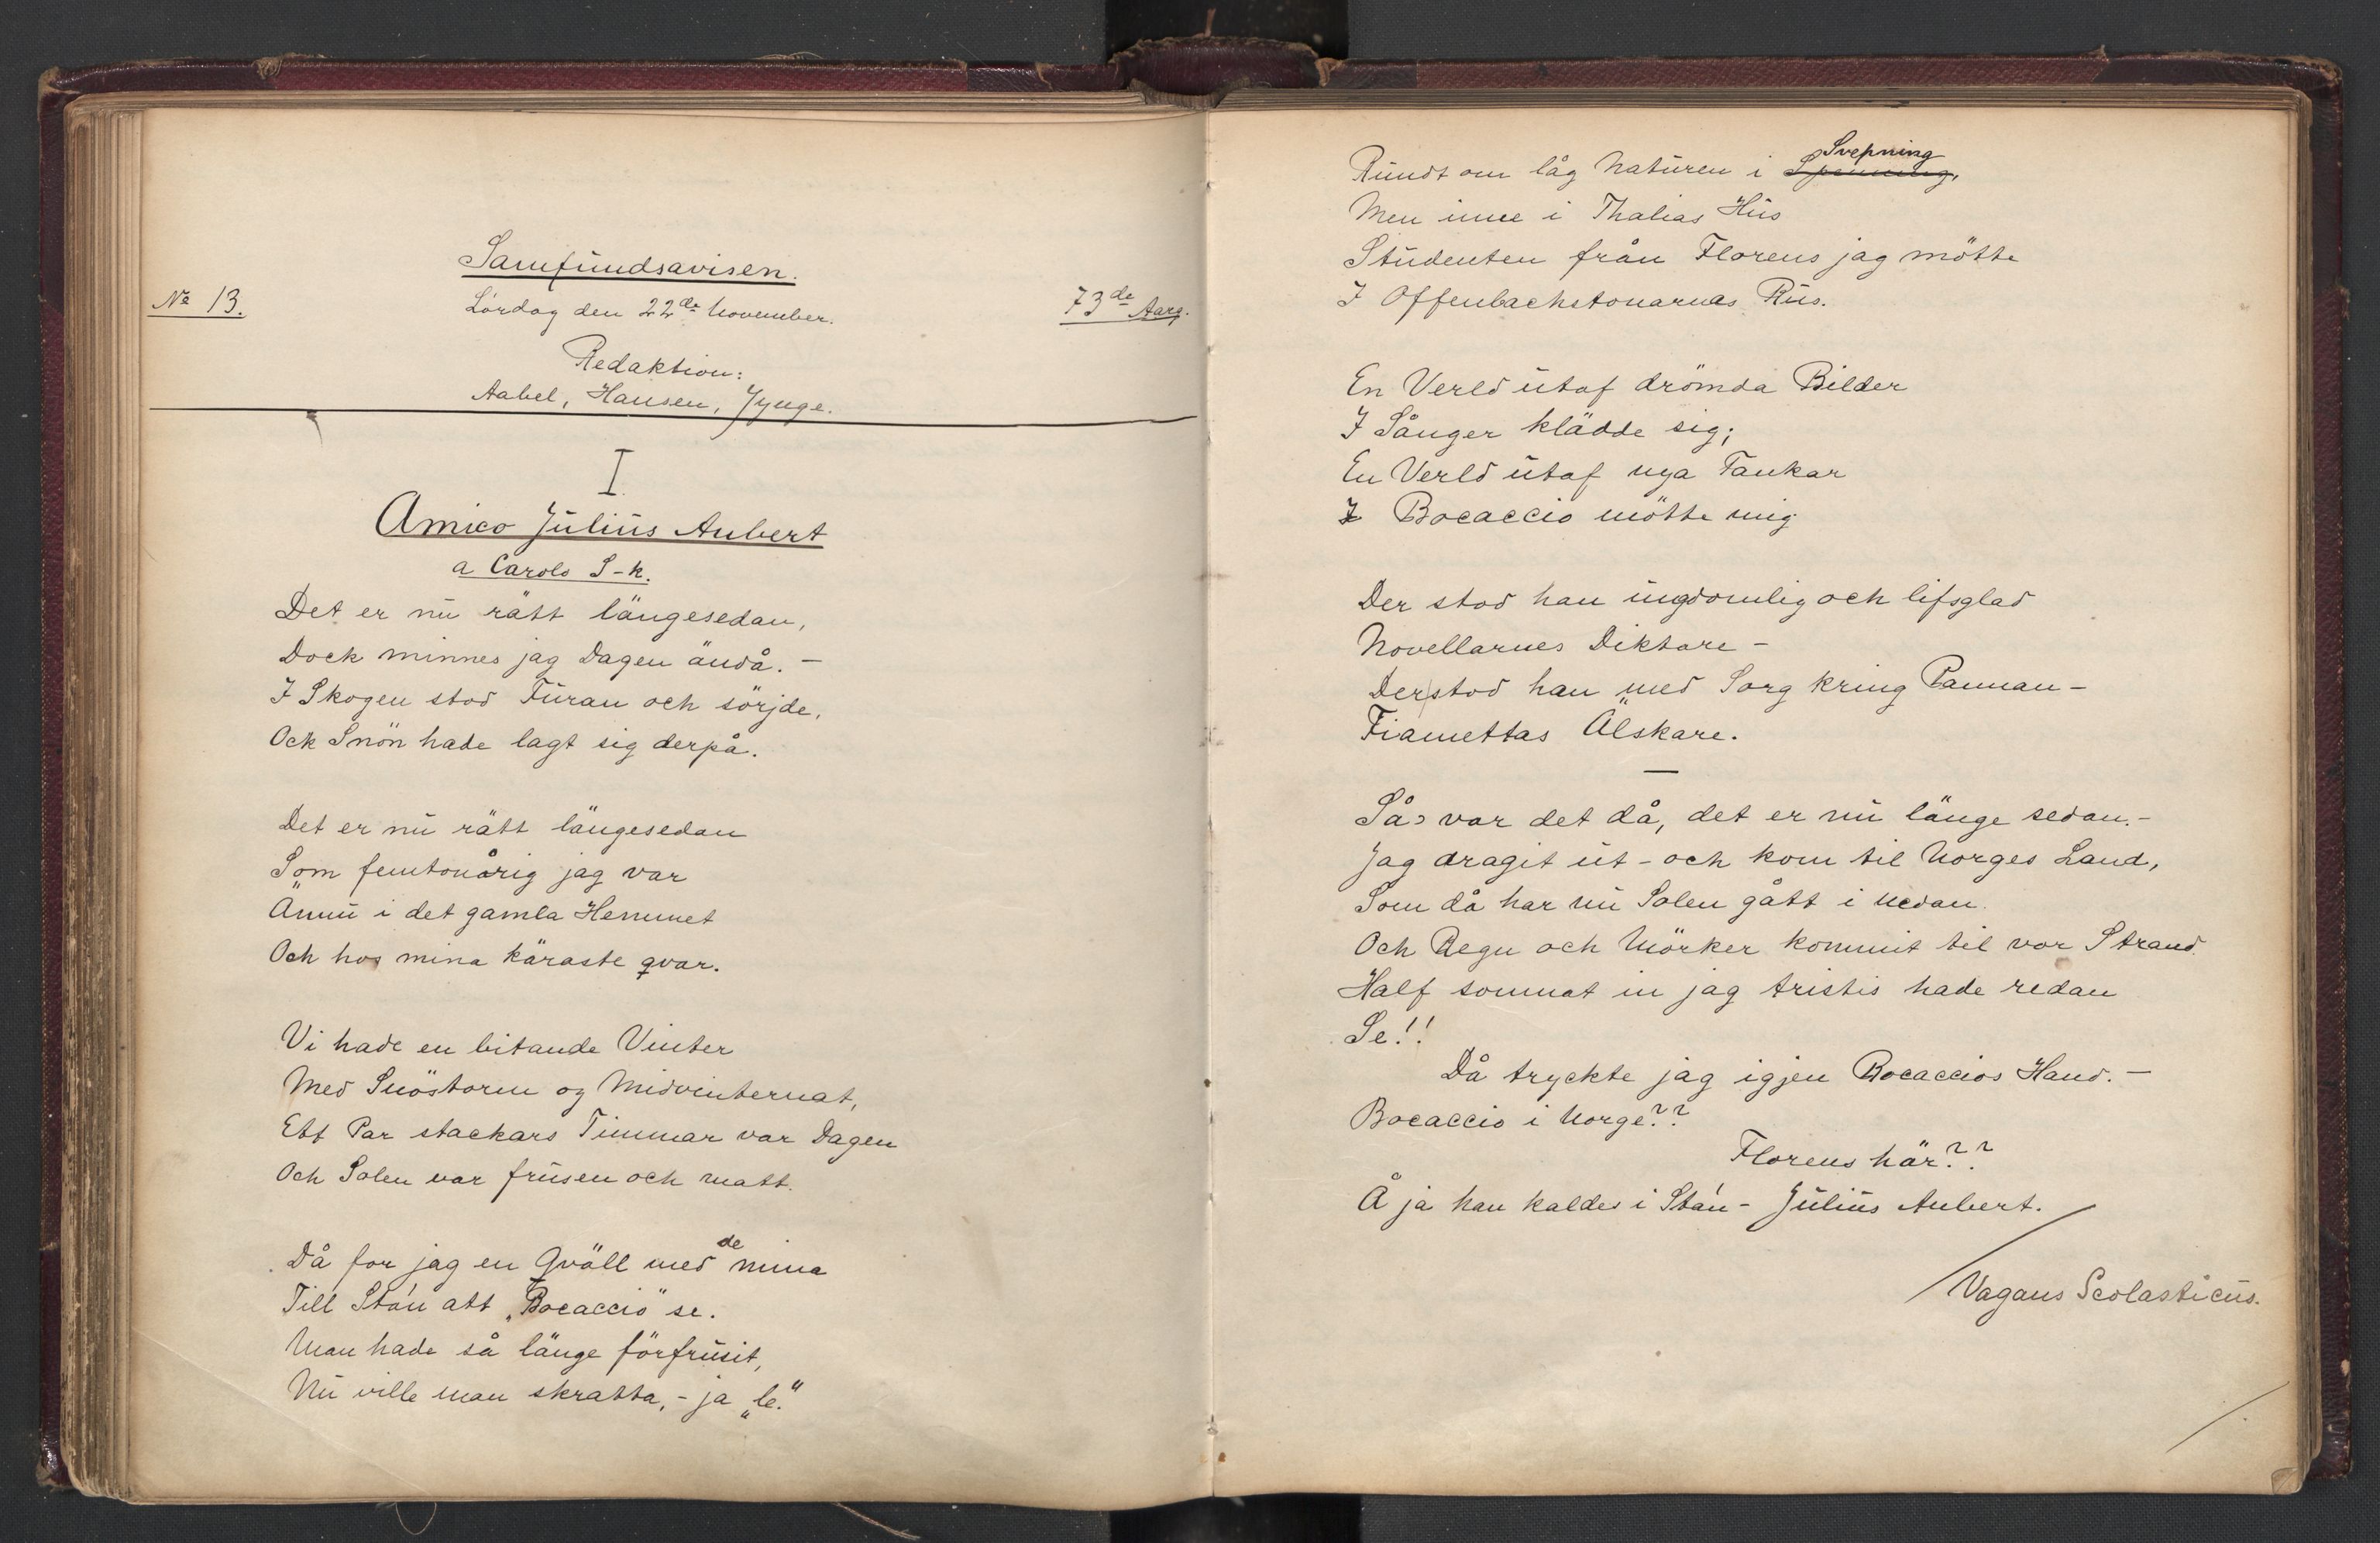 Samfundsavisen.
No 13.
Lördag den 22de November.
73de Aarg.
Redaktion:
Aabel, Hansen, Jynge.
I.
Amico Julius Aubert
a Carolo S-k.
Det er nu rätt längesedan,
Dock minnes jag Dagen ändå. -
I Skogen stod Furan och sörjde,
Ock Snön hade lagt sig derpå.
Det er nu rätt längesedan
Som femtonårig jag var
Ännu i det gamla Hemmet
Och hos mina käraste qvar.
Vi hade en bitande Vinter
Med Snöstorm og Midvinternat,
Ett Par stackars Timmar var Dagen
Och Solen var frusen och matt.
Då for jag en Qväll med de mina
Till Sta'n att „Bocaccio" se.
Man hade så länge förfrusit,
Nu ville man skratta, - ja „le."
Rundt om låg Naturen i Svepning
Men inne i Thalias Hus
Studenten från Florens jag mötte
I Offenbachstonarnas Rus.
En Verld utaf drömda Bilder
I Sånger klädde sig;
En Verld utaf nya Tankar
I Bocaccio mötte mig
Der stod han ungdomlig och lifsglad
Novellarnes Diktare -
Der stod han med Sorg kring Pannan -
Fiamettas Älskare.
Så var det då, det er nu länge sedan. -
Jag dragit ut - och kom til Norges Land,
Som då har nu Solen gått i nedan.
Och Regn och Mörker kommit til vor Strand.
Half somnat in jag tristis hade redan
Se!!
Då tryckte jag igjen Bocaccios Hand. -
Bocaccio i Norge??
Florens här??
Å ja han kaldes i Sta'n - Julius Aubert.
Vagans Scolasticus.